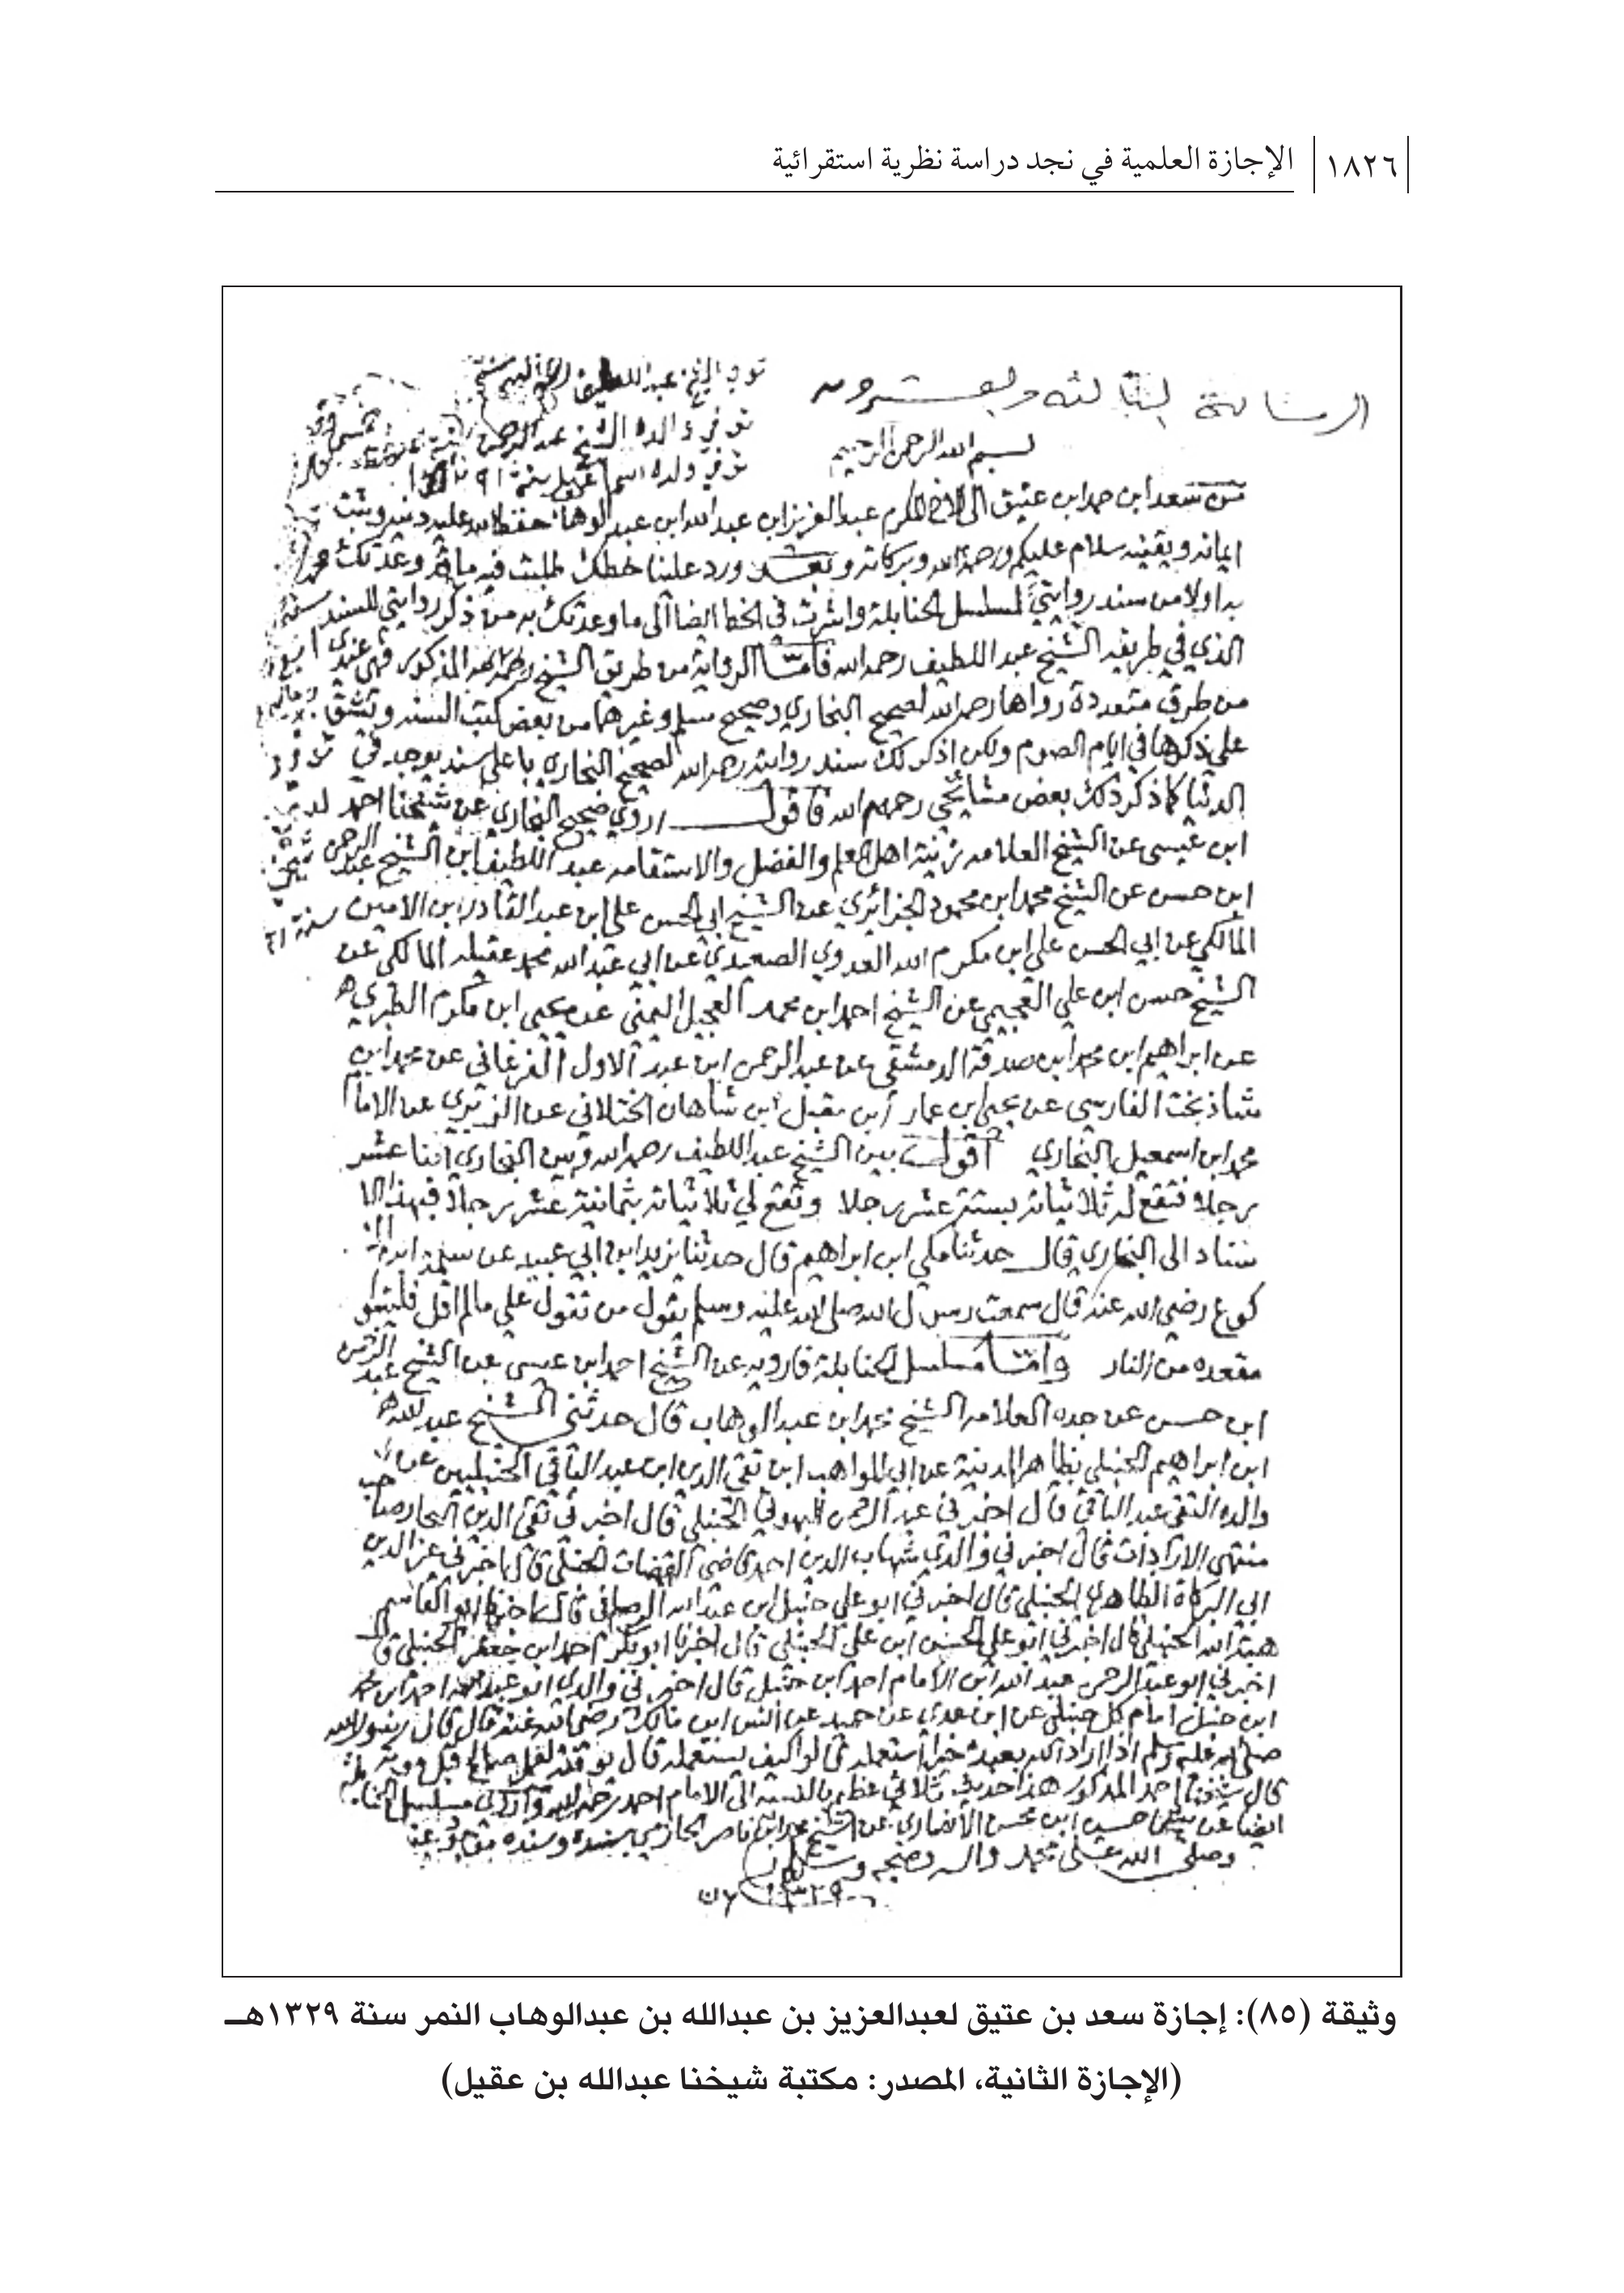 ١٨٢٦ الإجازة العلمية في نجد دراسة نظرية استقرائية
الرسالة الثالثه والعشرون
بسم الله الرحمن الرحيم
توفي الشيخ عبد اللطيف
توفي والده الشيخ عبد الرحمن
توفي ولده اسماعيل سنة
من سعد ابن حمد ابن عتيق الى الاخ المكرم عبد العزيز ابن عبد الله ابن عبد الوهاب حفظ الله عليه دينه وثبت
ايمانه ويقينه سلام عليكم ورحمة الله وبركاته وبعد ورد علينا خطك طلبت فيه ما وعدتك
به اولا من سند روايتي لمسلسل الحنابلة واشرت في الخط ايضا الى ما وعدتك به من ذكر روايتي للسند
الذي في طريقه الشيخ عبد اللطيف رحمه الله فأمّا الرواية من طريق الشيخ المذكور فهي عندي
من طرق متعددة رواها رحمه الله لصحيح البخاري وصحيح مسلم وغيرهما من بعض كتب السند وتشق
علي ذكرها في ايام الصوم ولكن اذكر لك سند روايته رحمه الله لصحيح البخاري باعلى سند يوجد في
الدنيا كما ذكر ذلك بعض مشائخي رحمهم الله فأقول اروي صحيح البخاري عن شيخنا احمد
ابن عيسى عن الشيخ العلامه زينة اهل العلم والفضل والاستقامه عبد اللطيف ابن الشيخ عبد الرحمن
ابن حسن عن الشيخ محمد ابن محمود الجزائري عن الشيخ ابي الحسن علي ابن عبد القادر ابن الامين
المالكي عن ابي الحسن علي ابن مكرم الله العدوي الصعيدي عن ابي عبد الله محمد عقيله المالكي عن
الشيخ حسن ابن علي العجيمي عن الشيخ احمد ابن محمد العجل اليمني عن يحيى ابن مكرم الطبري
عن ابراهيم ابن محمد ابن صدقة الدمشقي عن عبد الرحمن ابن عبد الاول الفرغاني عن محمد ابن
شاذ بخت الفارسي عن يحيى ابن عمار ابن مقبل ابن شاهان الختلاني عن الفربري عن الامام
محمد ابن اسمعيل البخاري أقول بين الشيخ عبد اللطيف رحمه الله وبين البخاري اثنا عشر
رجلا فتقع له ثلاثياته بستة عشر رجلا وتقع لي ثلاثياته بثمانية عشر رجلا فبهذا الا
سناد الى البخاري قال حدثنا مكي ابن ابراهيم قال حدثنا يزيد ابن ابي عبيد عن سلمة ابن الا
كوع رضي الله عنه قال سمعت رسول الله صلى الله عليه وسلم يقول من تقول علي مالم اقل فليتبو
مقعده من النار وامّا مسلسل الحنابلة فارويه عن الشيخ احمد ابن عيسى عن الشيخ عبد الرحمن
ابن حسن عن جده العلامه الشيخ محمد ابن عبد الوهاب قال حدثني الشيخ عبد الله
ابن ابراهيم الحنبلي بظاهر المدينة عن ابي المواهب ابن تقي الدين ابن عبد الباقي الحنبليين عن
والده التقي عبد الباقي قال اخبرني عبد الرحمن البهوتي الحنبلي قال اخبرني تقي الدين النجار صاحب
منتهى الارادات قال اخبرني والدي شهاب الدين احمد قاضي القضات الحنبلي قال اخبرني عز الدين
ابي البركاة الطاهر الحنبلي قال اخبرني ابو علي حنبل ابن عبد الله الرصافي قال اخبرنا ابو القاسم
هبة الله الحنبلي قال اخبرني ابو علي الحسن ابن علي الحنبلي قال اخبرنا ابو بكر احمد ابن جعفر الحنبلي قال
اخبرني ابو عبد الرحمن عبد الله ابن الامام احمد ابن حنبل قال اخبرني والدي ابو عبد الله احمد ابن محمد
ابن حنبل امام كل حنبلي عن ابن عدي عن حميد عن انس ابن مالك رضي الله عنه قال قال رسول الله
صلى الله عليه وسلم اذا اراد الله بعبده خيرا استعمله قالوا كيف يستعمله قال يوفقه لعمل صالح قبل موته
قال شيخنا احمد المذكور هذا حديث ثلاثي عظيم بالنسبة الى الامام احمد رحمه الله وأروي مسلسل الحنابلة
ايضا عن شيخنا حسين ابن محسن الأنصاري عن الشيخ محمد ابن ناصر الحازمي بسنده وسنده
وصلى الله على محمد واله وصحبه وسلم
١٣٢٩
وثيقة (٨٥): إجازة سعد بن عتيق لعبدالعزيز بن عبدالله بن عبدالوهاب النمر سنة ١٣٢٩هـ
(الإجازة الثانية، المصدر: مكتبة شيخنا عبدالله بن عقيل)